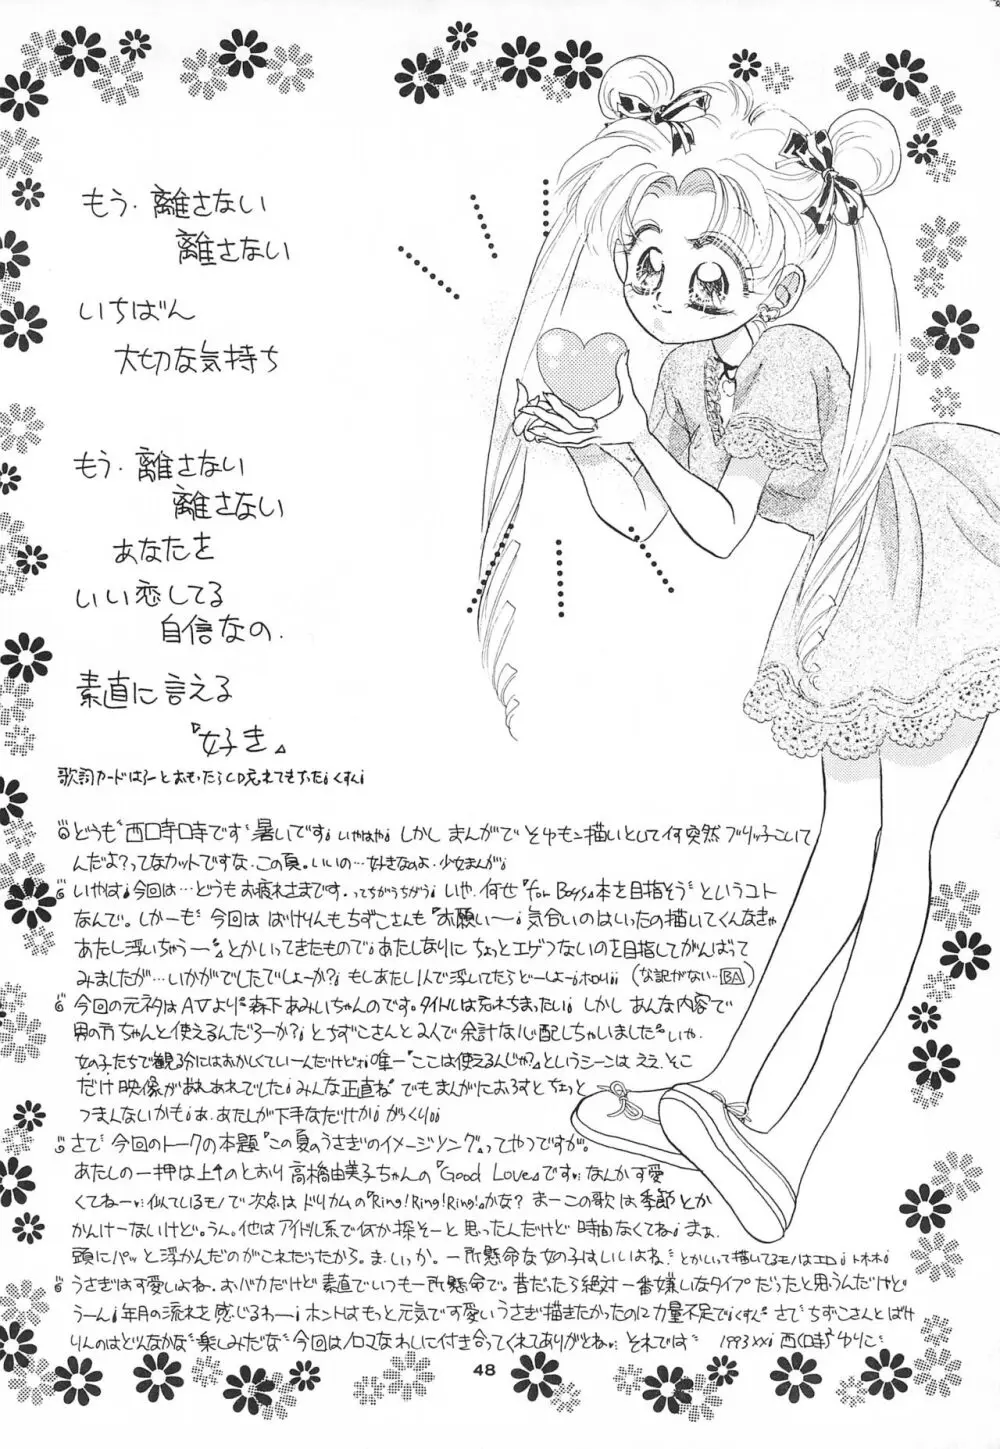 もう・離さない
離さない
いちばん
大切な気持ち
もう・離さない
離さない
あなたを
いい恋してる
自信なの.
素直に言える
『好き』
歌詞カードはろーとおもったらCD忘れてきちった！くすん！
どうも"西口寺口寺です"暑いです！いやはや！しかし まんがで そゆモン描いとして何突然 ブリッ子こいて
んだよ?ってなカットですな。この頁。いいの…好きなのよ・少女まんが！
いやは！今回は…どうもお疲れさまです。ってちがうちがう！いや、何せ『for Boys』本を目指そう"というコト
なんで。しかーも"今回は ばけりんもちずこさんも『お願い〜！気合いのはいったの描いてくんなきゃ
あたし浮いちゃうー"』とかいってきたもので！あたしなりに ちょっとエゲつないのを目指してがんばって
みましたが…いかがでしたでしょーか?！もしあたし1人で浮いてたらどーしよー！ホロリ！！ (な訳がない…BA)
今回の元ネタはAVより"森下あみいちゃんのです。タイトルは忘れちまったい！しかし あんな内容で
男の方ちゃんと使えるんだろーか?！とちずこさんと2人で余計な心配しちゃいました"いや、
女の子たちで観る分にはおかしくていーんだけどォ！唯一『ここは使えるんじゃ?』というシーンは ええ、そこ
だけ 映像があれあれでした！みんな正直ね"でもまんがにおろすと ちょっと
つまんないかも！あ、あたしが下手なだけか！がっくり！！
さて"今回のトークの本題『この夏のうさぎのイメージソング』ってやつですが。
あたしの一押は上↑のとおり高橋由美子ちゃんの『Good Love』です なんかす愛
くてねー 似ているモノで次点は ドリカムの『Ring!Ring!Ring!』かな? まーこの歌は季節とか
かんけーないけど。うん。他はアイドル系で何か探そーと思ったんだけど 時間なくてね！まぁ、
頭にパッと浮かんだのがこれだったから。ま、いっか。一所懸命な女の子はいいよね."とかいって描いてるモノはエロ！トホホ！
うさぎはす愛しよね。おバカだけど素直でいつも一所懸命で。昔だったら絶対一番嫌いなタイプだったと思うんだけど
うーん！年月の流れを感じるわー！ホントはもっと元気です愛いうさぎ描きたかったのに力量不足で！くすん"さて"ちずこさんとばけ
りんのはどんなかな"楽しみだな"今回はノロマなわしに付き合ってくれてありがとね それでは" 1993xx！西口寺"ゆりこ
48